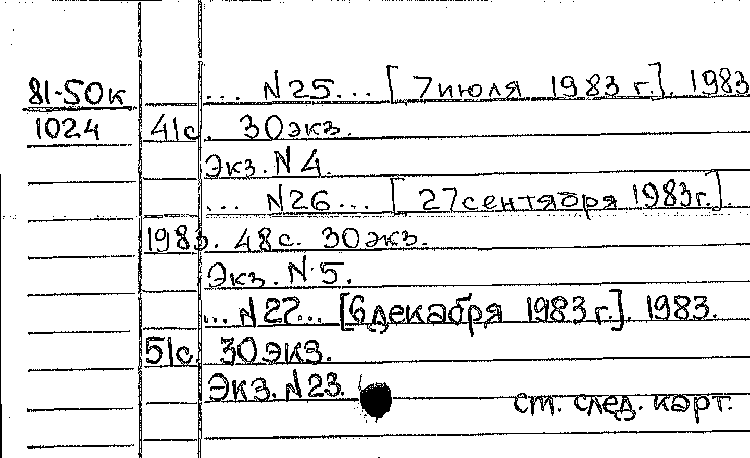 81-50к ... N25... [7июля 1983 г.]. 1983
1024 41с. 30экз.
Экз. N4.
... N26... [27сентября 1983г.].
1983. 48с. 30экз.
Экз. N5.
... N27... [6декабря 1983 г.]. 1983.
51с. 30экз.
Экз. N23.
ст. след. карт.